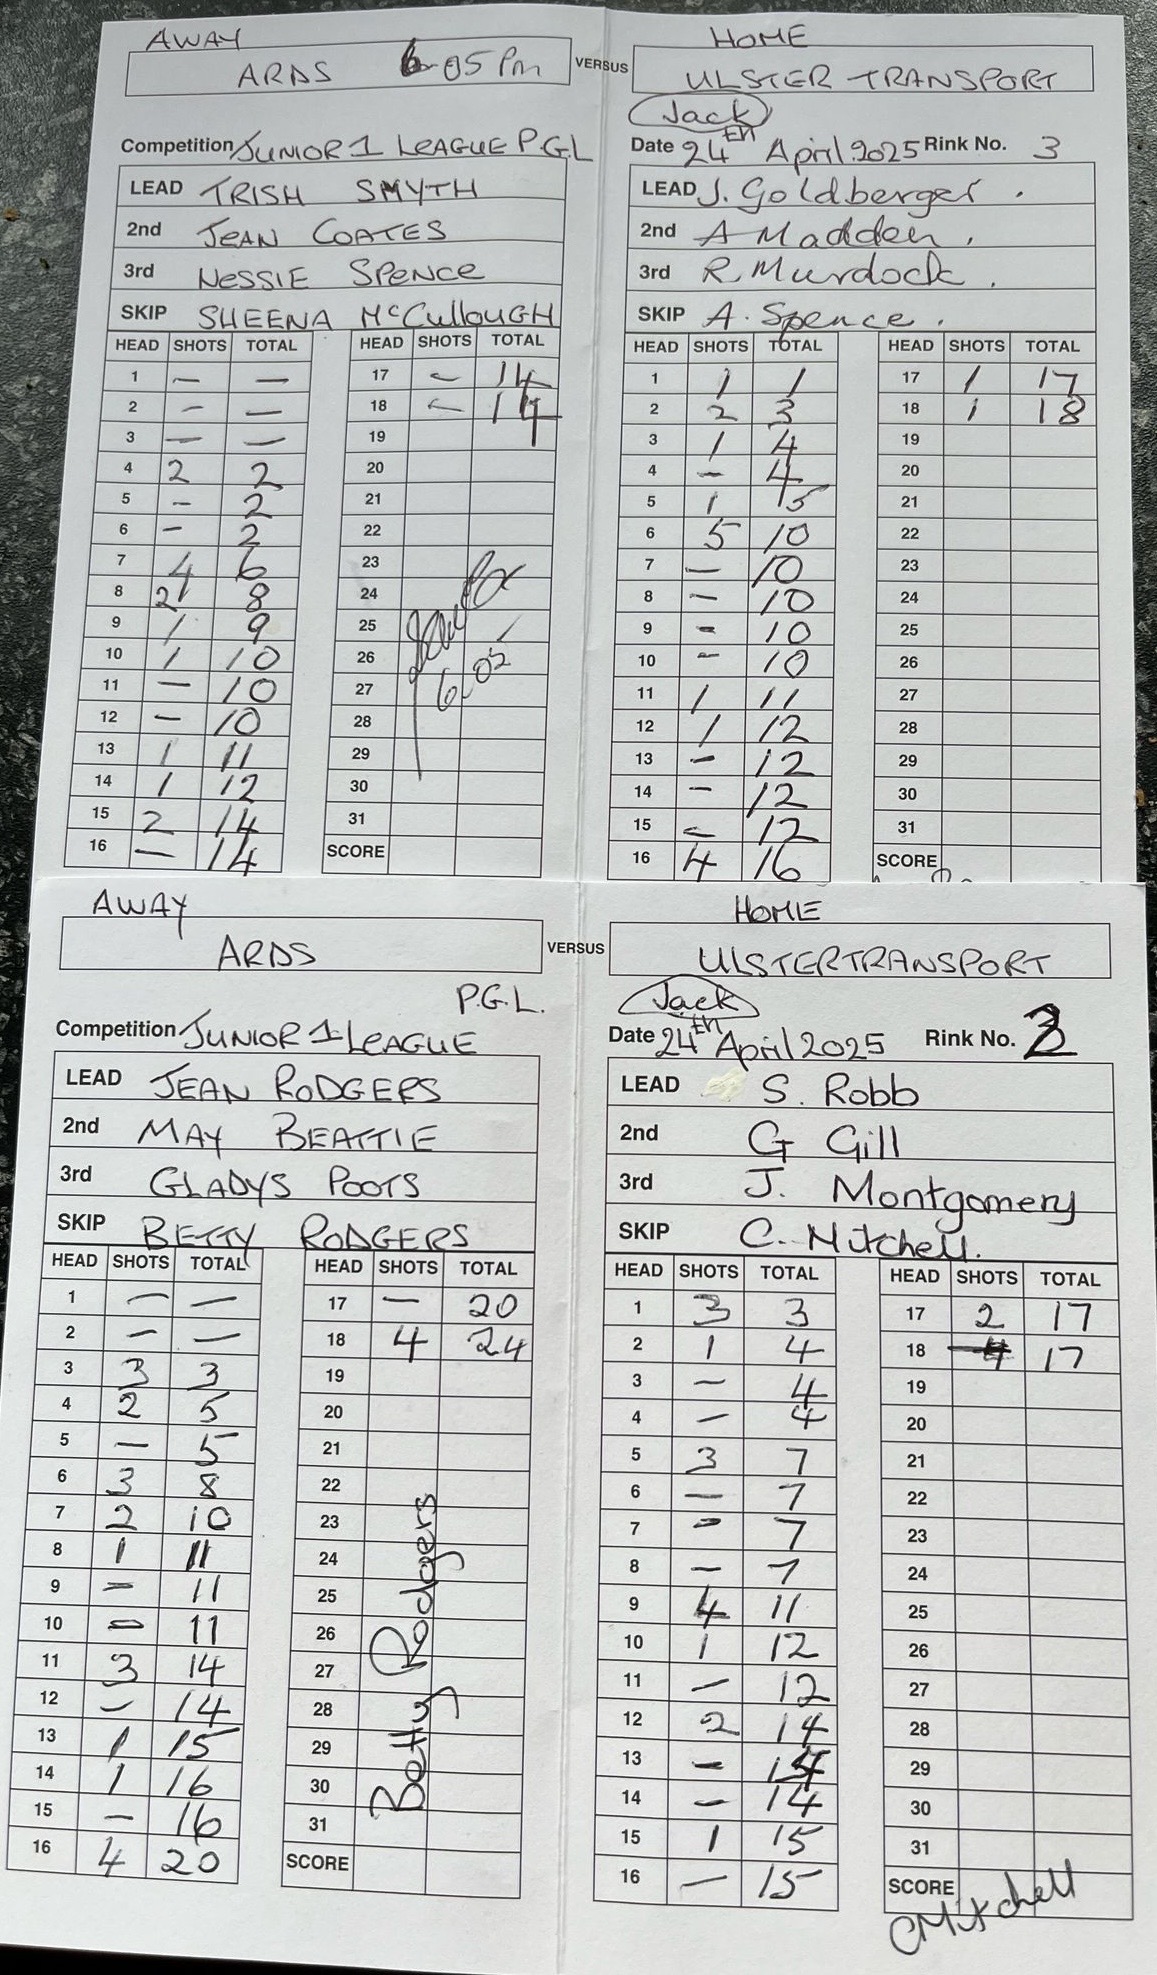 AWAY HOME
ARDS 6-05 Pm VERSUS ULSTER TRANSPORT
Jack
Competition JUNIOR 1 LEAGUE P.G.L Date 24TH April 2025 Rink No. 3
LEAD TRISH SMYTH LEAD J. Goldberger.
2nd JEAN COATES 2nd A Madden.
3rd NESSIE SPENCE 3rd R. Murdock.
SKIP SHEENA McCULLOUGH SKIP A. Spence.
HEAD SHOTS TOTAL HEAD SHOTS TOTAL HEAD SHOTS TOTAL HEAD SHOTS TOTAL
1 – – 17 – 14 1 1 1 17 1 17
2 – – 18 – 14 2 2 3 18 1 18
3 – – 19 3 1 4 19
4 2 2 20 4 – 4 20
5 – 2 21 5 1 5 21
6 – 2 22 6 5 10 22
7 4 6 23 7 – 10 23
8 2 8 24 8 – 10 24
9 1 9 25 9 – 10 25
10 1 10 26 6.05 10 – 10 26
11 – 10 27 11 1 11 27
12 – 10 28 12 1 12 28
13 1 11 29 13 – 12 29
14 1 12 30 14 – 12 30
15 2 14 31 15 – 12 31
16 – 14 SCORE 16 4 16 SCORE
AWAY HOME
ARDS VERSUS ULSTERTRANSPORT
P.G.L. Jack
Competition JUNIOR 1 LEAGUE Date 24TH April 2025 Rink No. 2
LEAD JEAN RODGERS LEAD S. Robb
2nd MAY BEATTIE 2nd G Gill
3rd GLADYS POOTS 3rd J. Montgomery
SKIP BETTY RODGERS SKIP C. Mitchell.
HEAD SHOTS TOTAL HEAD SHOTS TOTAL HEAD SHOTS TOTAL HEAD SHOTS TOTAL
1 – – 17 – 20 1 3 3 17 2 17
2 – – 18 4 24 2 1 4 18 – 17
3 3 3 19 3 – 4 19
4 2 5 20 4 – 4 20
5 – 5 21 5 3 7 21
6 3 8 22 6 – 7 22
7 2 10 23 7 – 7 23
8 1 11 24 8 – 7 24
9 – 11 25 9 4 11 25
10 – 11 26 10 1 12 26
11 3 14 27 11 – 12 27
12 – 14 28 12 2 14 28
13 1 15 29 13 – 14 29
14 1 16 30 14 – 14 30
15 – 16 31 15 1 15 31
16 4 20 SCORE 16 – 15 SCORE
Betty Rodgers
CMitchell